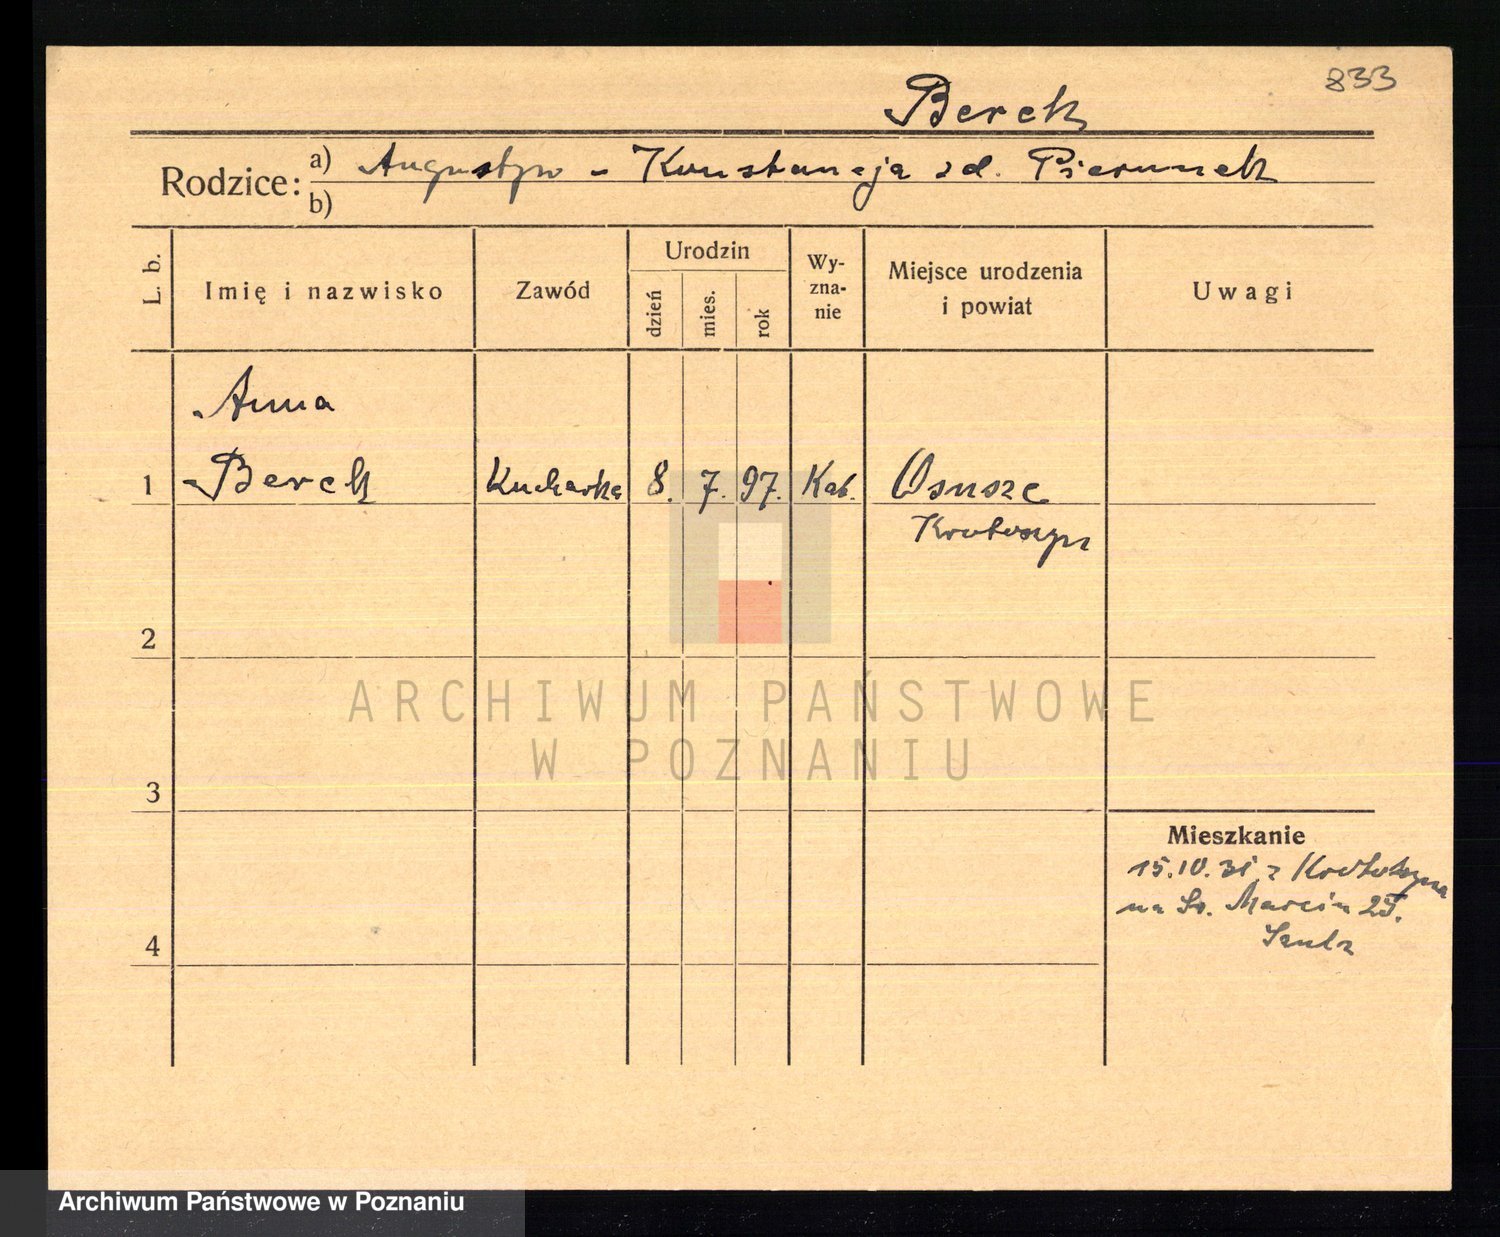 833
Berek
Rodzice: a) Augustyn - Konstancja zd. Pierunek
b)
L. b.
Imię i nazwisko
Zawód
Urodzin
dzień
mies.
rok
Wy-
zna-
nie
Miejsce urodzenia
i powiat
Uwagi
Anna
1 Berek Kucharka 8. 7. 97. Kat. Osusz
Krotoszyn
2
3
4
Mieszkanie
15.10.31. z Krotoszyna
na Św. Marcin
Szulz
ARCHIWUM PAŃSTWOWE
W POZNANIU
Archiwum Państwowe w Poznaniu